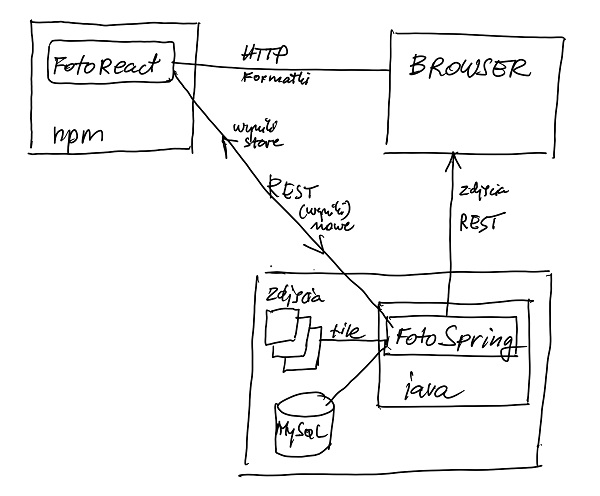 FotoReact
npm
HTTP
Formatki
BROWSER
wyniki
stare
REST
(wyniki)
nowe
zdjęcia
REST
zdjęcia
file
FotoSpring
java
MySQL